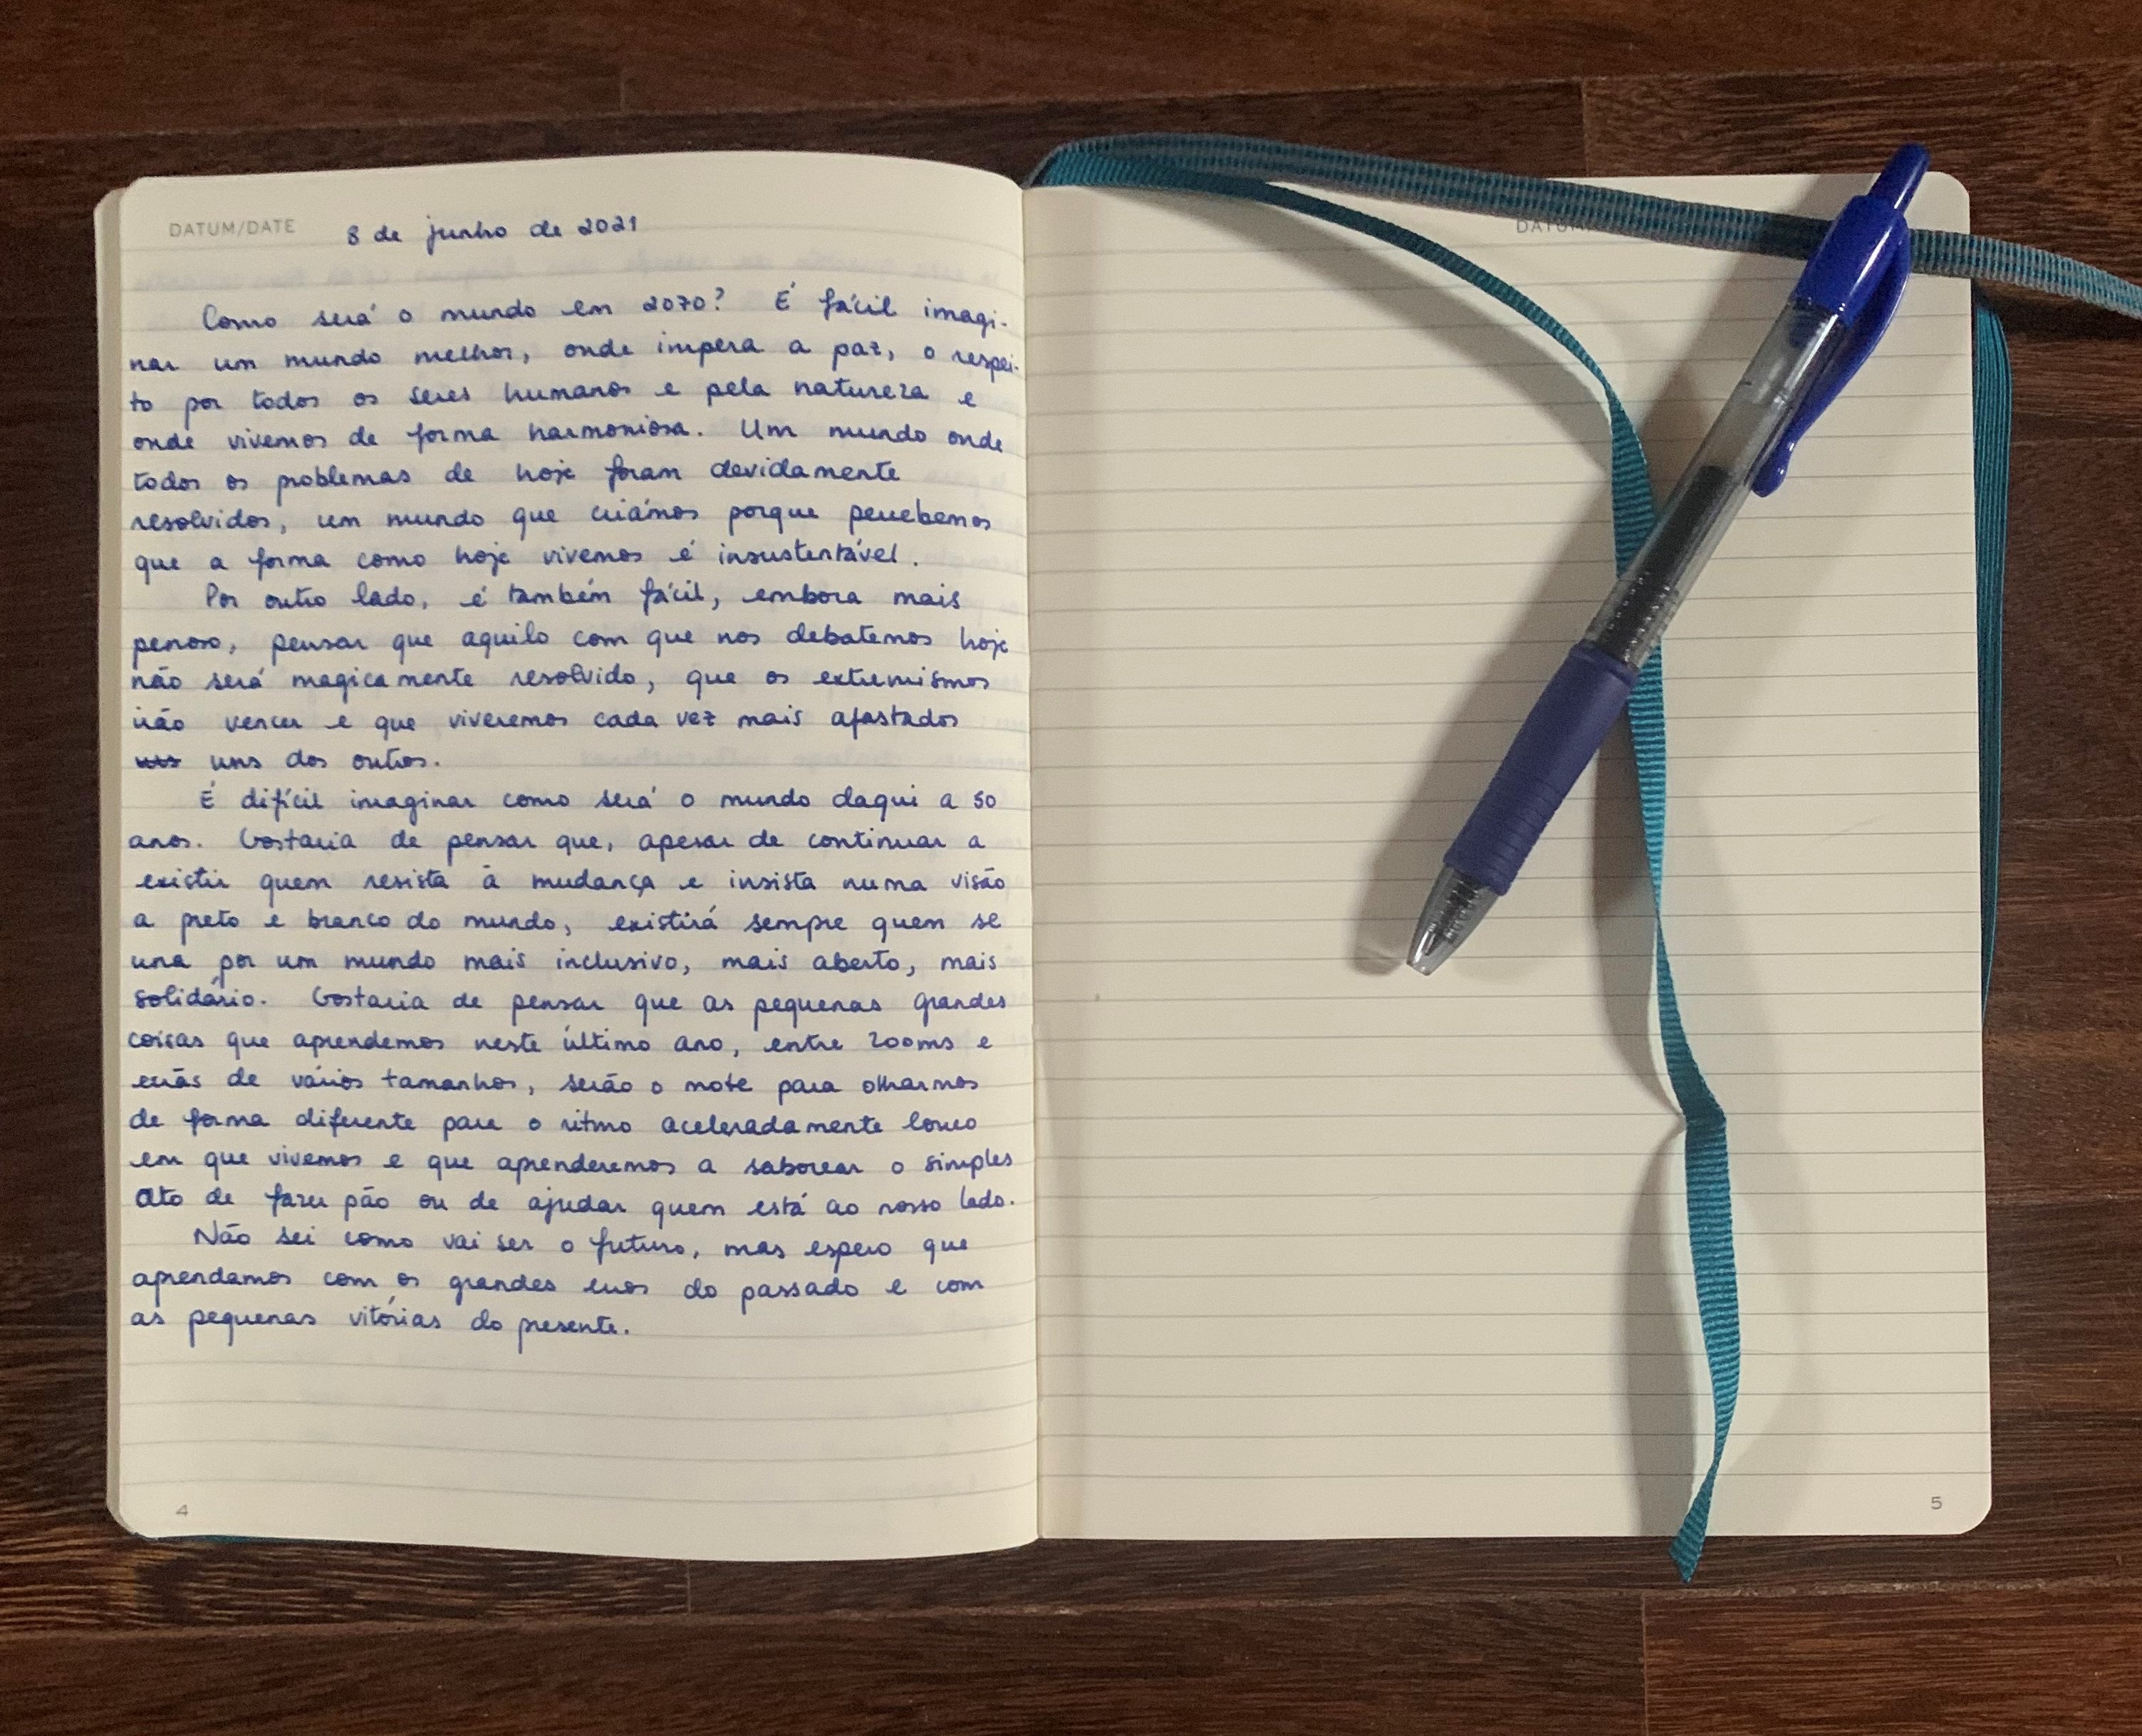 DATUM/DATE 8 de junho de 2021
Como será o mundo em 2070? É fácil imagi-
nar um mundo melhor, onde impera a paz, o respei-
to por todos os seres humanos e pela natureza e
onde vivemos de forma harmoniosa. Um mundo onde
todos os problemas de hoje foram devidamente
resolvidos, um mundo que criámos porque percebemos
que a forma como hoje vivemos é insustentável.
Por outro lado, é também fácil, embora mais
penoso, pensar que aquilo com que nos debatemos hoje
não será magicamente resolvido, que os extremismos
irão vencer e que viveremos cada vez mais afastados
uns dos outros.
É difícil imaginar como será o mundo daqui a 50
anos. Gostaria de pensar que, apesar de continuar a
existir quem resista à mudança e insista numa visão
a preto e branco do mundo, existirá sempre quem se
una por um mundo mais inclusivo, mais aberto, mais
solidário. Gostaria de pensar que as pequenas grandes
coisas que aprendemos neste último ano, entre zooms e
ecrãs de vários tamanhos, serão o mote para olharmos
de forma diferente para o ritmo aceleradamente louco
em que vivemos e que aprenderemos a saborear o simples
ato de fazer pão ou de ajudar quem está ao nosso lado.
Não sei como vai ser o futuro, mas espero que
aprendamos com os grandes erros do passado e com
as pequenas vitórias do presente.
4
5